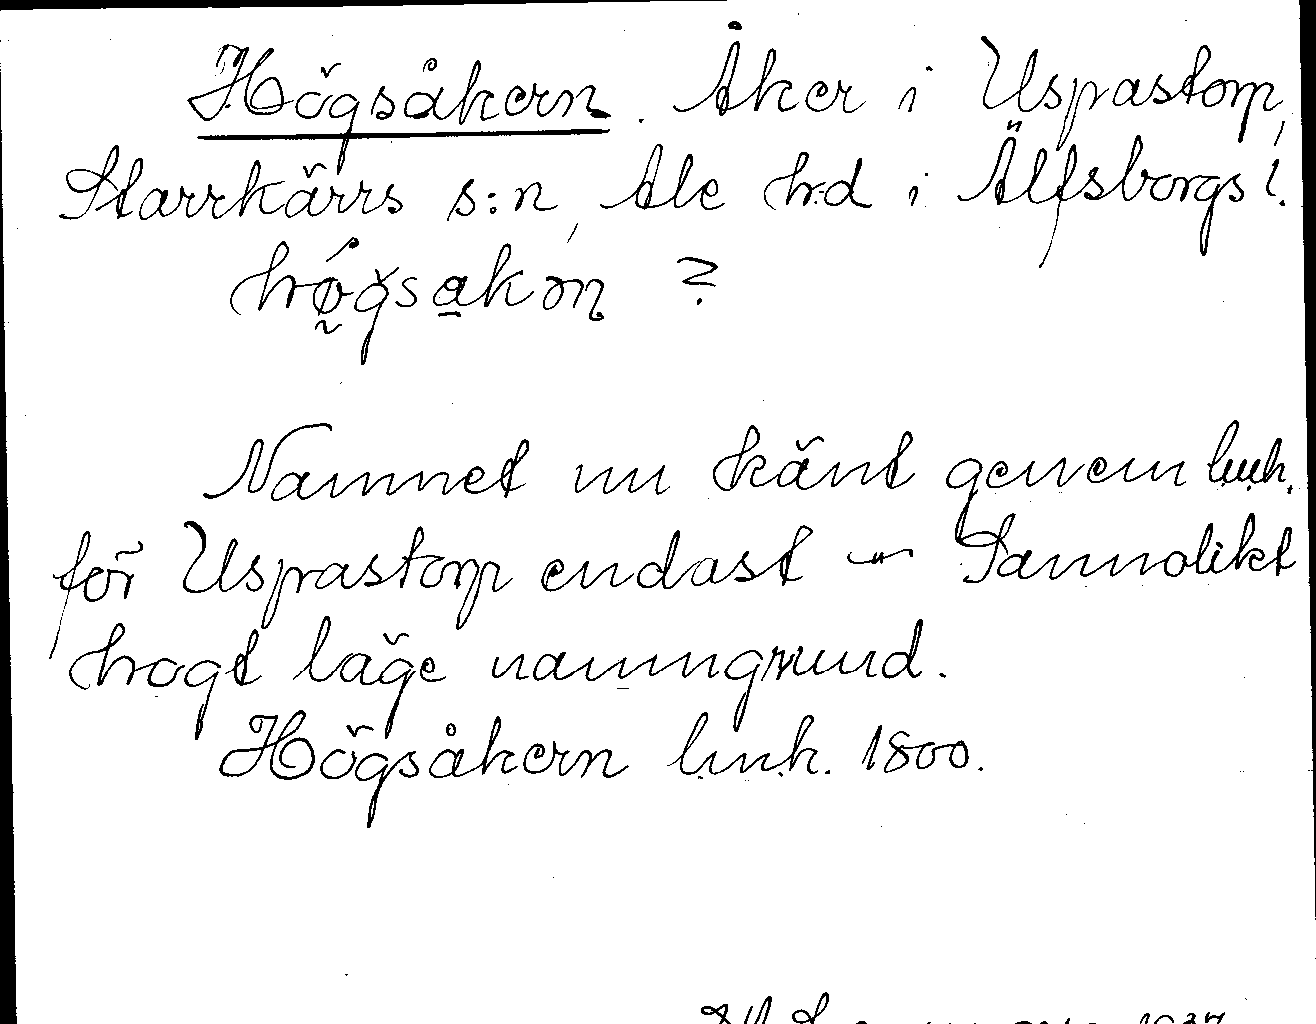 Högsåkern. Åker i Uspastorp,
Starrkärrs s:n, Ale h:d i Älfsborgs l.
hǿ̰gsa̱kən ?
Namnet nu känt genom l.u.k.
för Uspastorp endast — Sannolikt
högt läge namngrund.
Högsåkern l.u.k. 1800.
1937